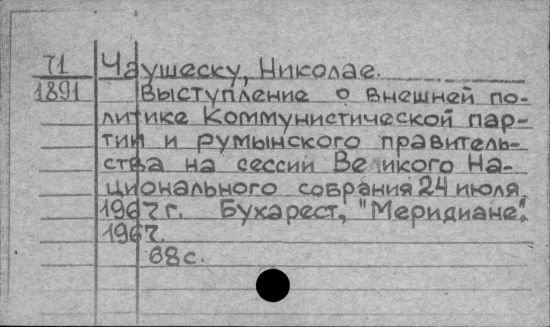 71 Чаушеску, Николае.
1891 Выступление о внешней по-
литике Коммунистической пар-
тии и румынского правитель-
ства на сессии Великого На-
ционального собрания 24 июля
1967 г. Бухарест, "Меридиане",
1967.
68 с.